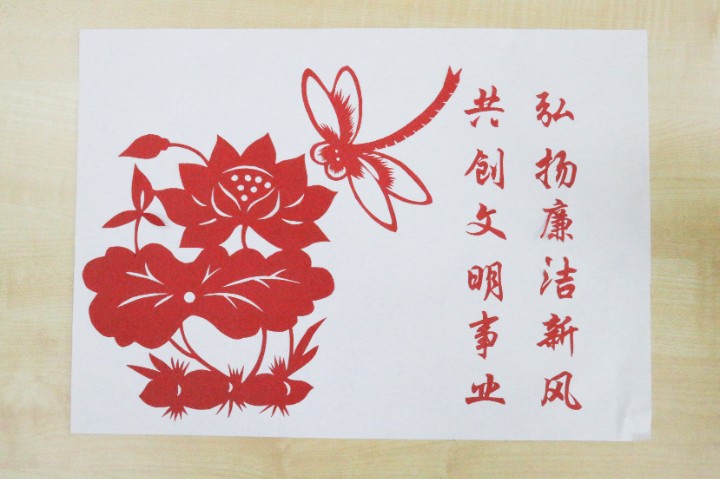 弘扬廉洁新风
共创文明事业